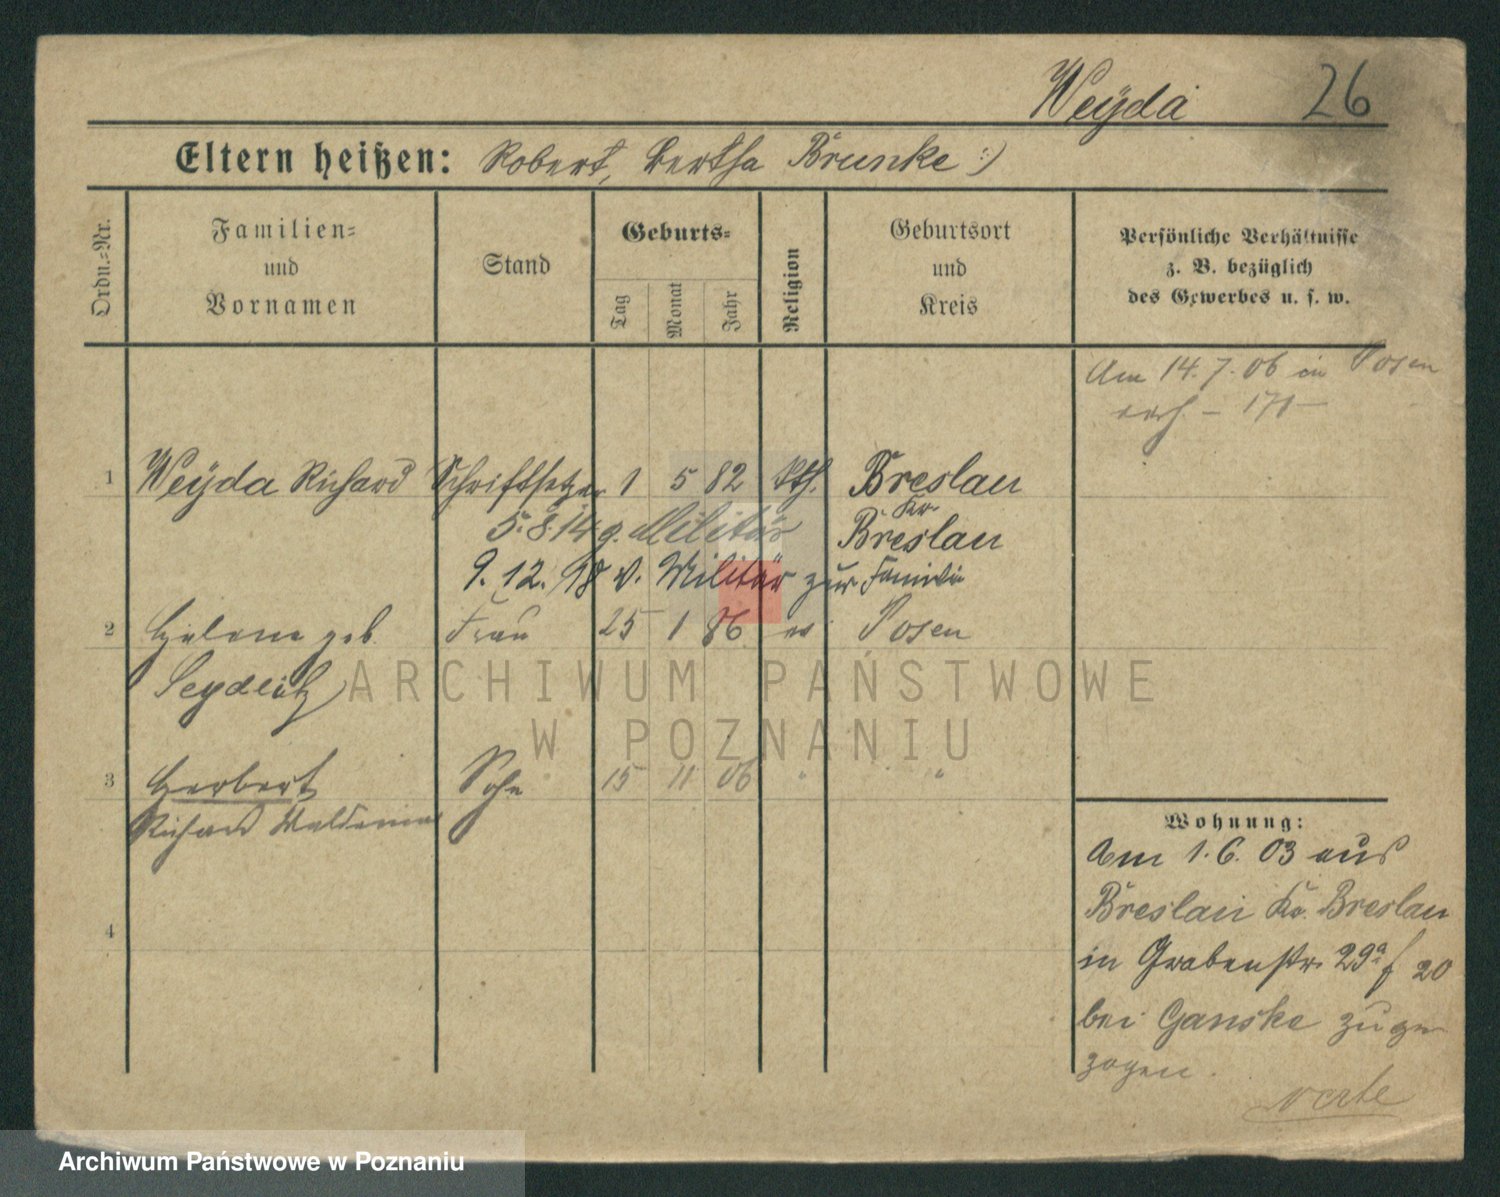 Weÿda 26
Eltern heißen: Robert, Bertha Brunke :)
Ordn.-Nr.
Familien-
und
Vornamen
Stand
Geburts-
Tag
Monat
Jahr
Religion
Geburtsort
und
Kreis
Persönliche Verhältnisse
z. B. bezüglich
des Gewerbes u. s. w.
Am 14.7.06 in Posen
verh. - 171 -
1 Weÿda Richard Schriftsetzer 1 5 82 kth. Breslau
Kr.
5.8.14 g. Militär Breslau
9.12.18 v. Militär zur Familie
2 Helene geb. Frau 25 1 86 ev Posen
Seydlitz
3 Herbert Sohn 15 11 06 " "
Richard Waldemar
4
Wohnung:
Am 1.6.03 aus
Breslau Kr. Breslau
in Grabenstr. 29a f 20
bei Ganske zuge
zogen.
verte
ARCHIWUM PAŃSTWOWE
W POZNANIU
Archiwum Państwowe w Poznaniu